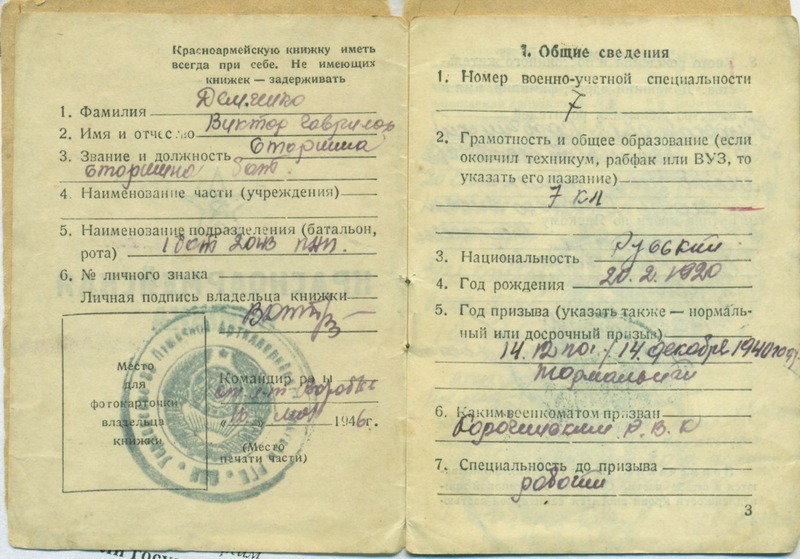 Красноармейскую книжку иметь
всегда при себе. Не имеющих
книжек — задерживать
1. Фамилия Демченко
2. Имя и отчество Виктор Гаврилов
3. Звание и должность Старшина
старшина бат.
4. Наименование части (учреждения)
5. Наименование подразделения (батальон,
рота)
6. № личного знака
Личная подпись владельца книжки
Место
для
фотокарточки
владельца
книжки
Командир роты
„10“ мая 1946 г.
(Место
печати части)
1. Общие сведения
1. Номер военно-учетной специальности
7
2. Грамотность и общее образование (если
окончил техникум, рабфак или ВУЗ, то
указать его название)
7 кл
3. Национальность Русский
4. Год рождения 20.2.1920
5. Год призыва (указать также — нормаль-
ный или досрочный призыв)
14 декабря 1940 году
нормальный
6. Каким военкоматом призван
Р.В.К
7. Специальность до призыва
рабочий
3